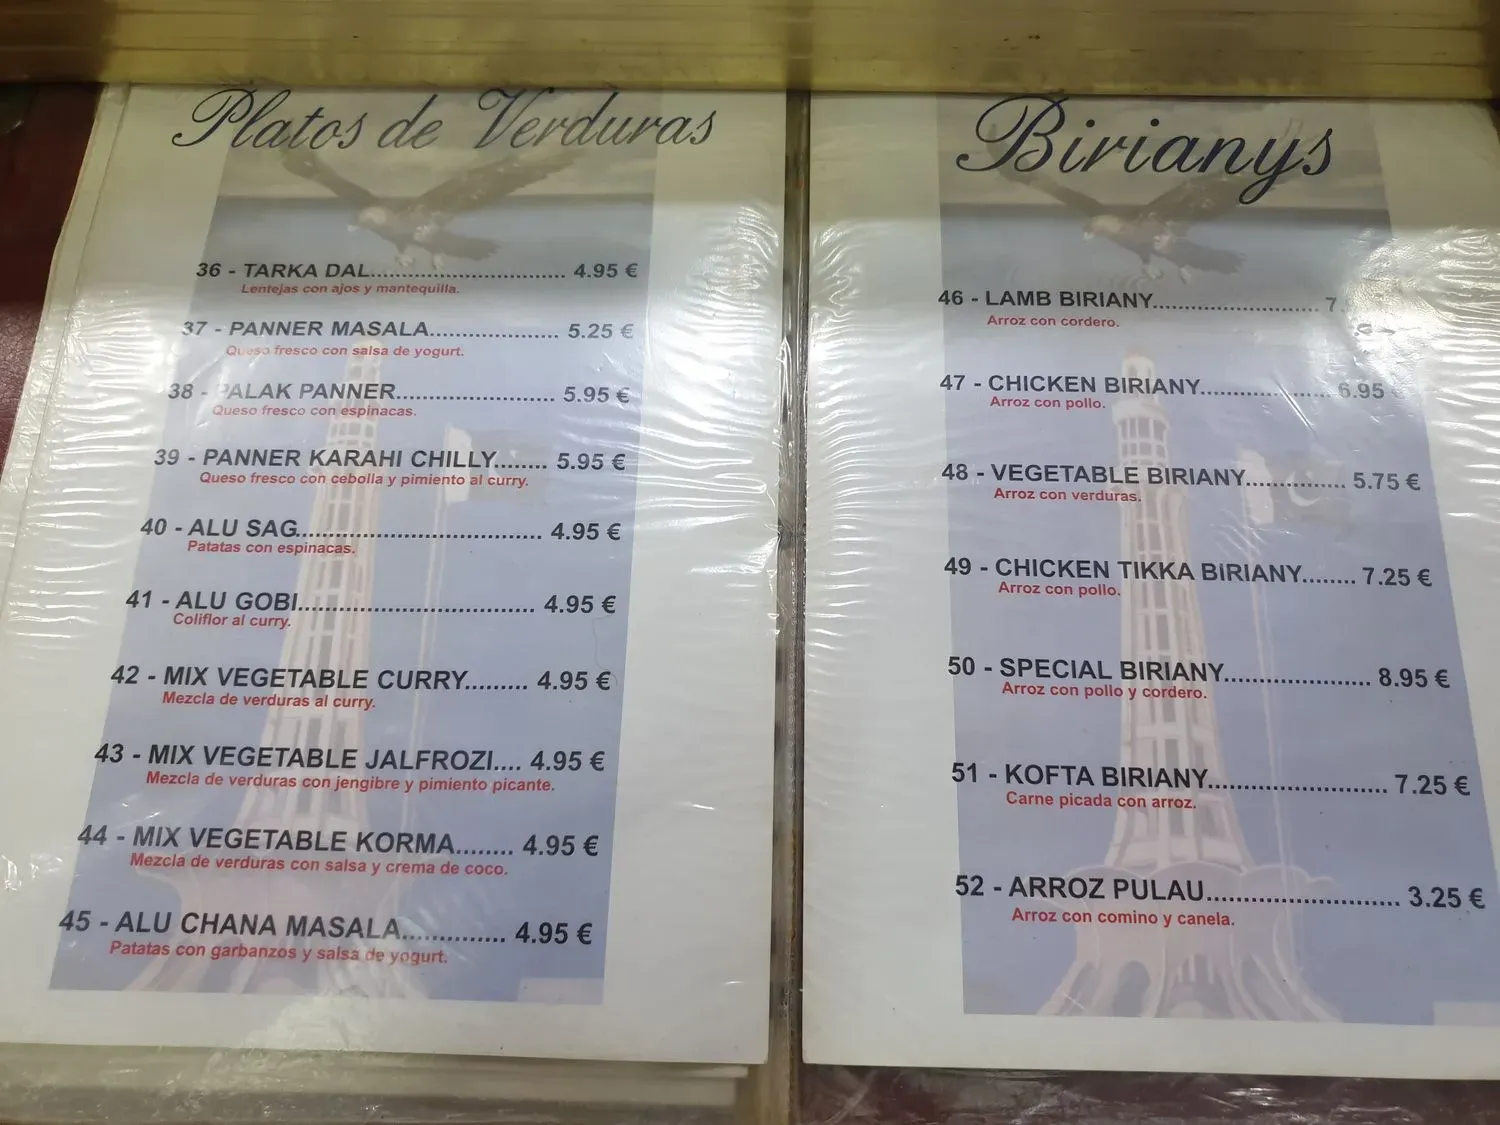 Platos de Verduras
36 - TARKA DAL.................................. 4.95 €
Lentejas con ajos y mantequilla.
37 - PANNER MASALA...................... 5.25 €
Queso fresco con salsa de yogurt.
38 - PALAK PANNER........................... 5.95 €
Queso fresco con espinacas.
39 - PANNER KARAHI CHILLY........ 5.95 €
Queso fresco con cebolla y pimiento al curry.
40 - ALU SAG....................................... 4.95 €
Patatas con espinacas.
41 - ALU GOBI..................................... 4.95 €
Coliflor al curry.
42 - MIX VEGETABLE CURRY......... 4.95 €
Mezcla de verduras al curry.
43 - MIX VEGETABLE JALFROZI.... 4.95 €
Mezcla de verduras con jengibre y pimiento picante.
44 - MIX VEGETABLE KORMA........ 4.95 €
Mezcla de verduras con salsa y crema de coco.
45 - ALU CHANA MASALA.............. 4.95 €
Patatas con garbanzos y salsa de yogurt.
Birianys
46 - LAMB BIRIANY..........................
Arroz con cordero.
47 - CHICKEN BIRIANY.................... 6.95 €
Arroz con pollo.
48 - VEGETABLE BIRIANY............... 5.75 €
Arroz con verduras.
49 - CHICKEN TIKKA BIRIANY........ 7.25 €
Arroz con pollo.
50 - SPECIAL BIRIANY...................... 8.95 €
Arroz con pollo y cordero.
51 - KOFTA BIRIANY.......................... 7.25 €
Carne picada con arroz.
52 - ARROZ PULAU............................ 3.25 €
Arroz con comino y canela.